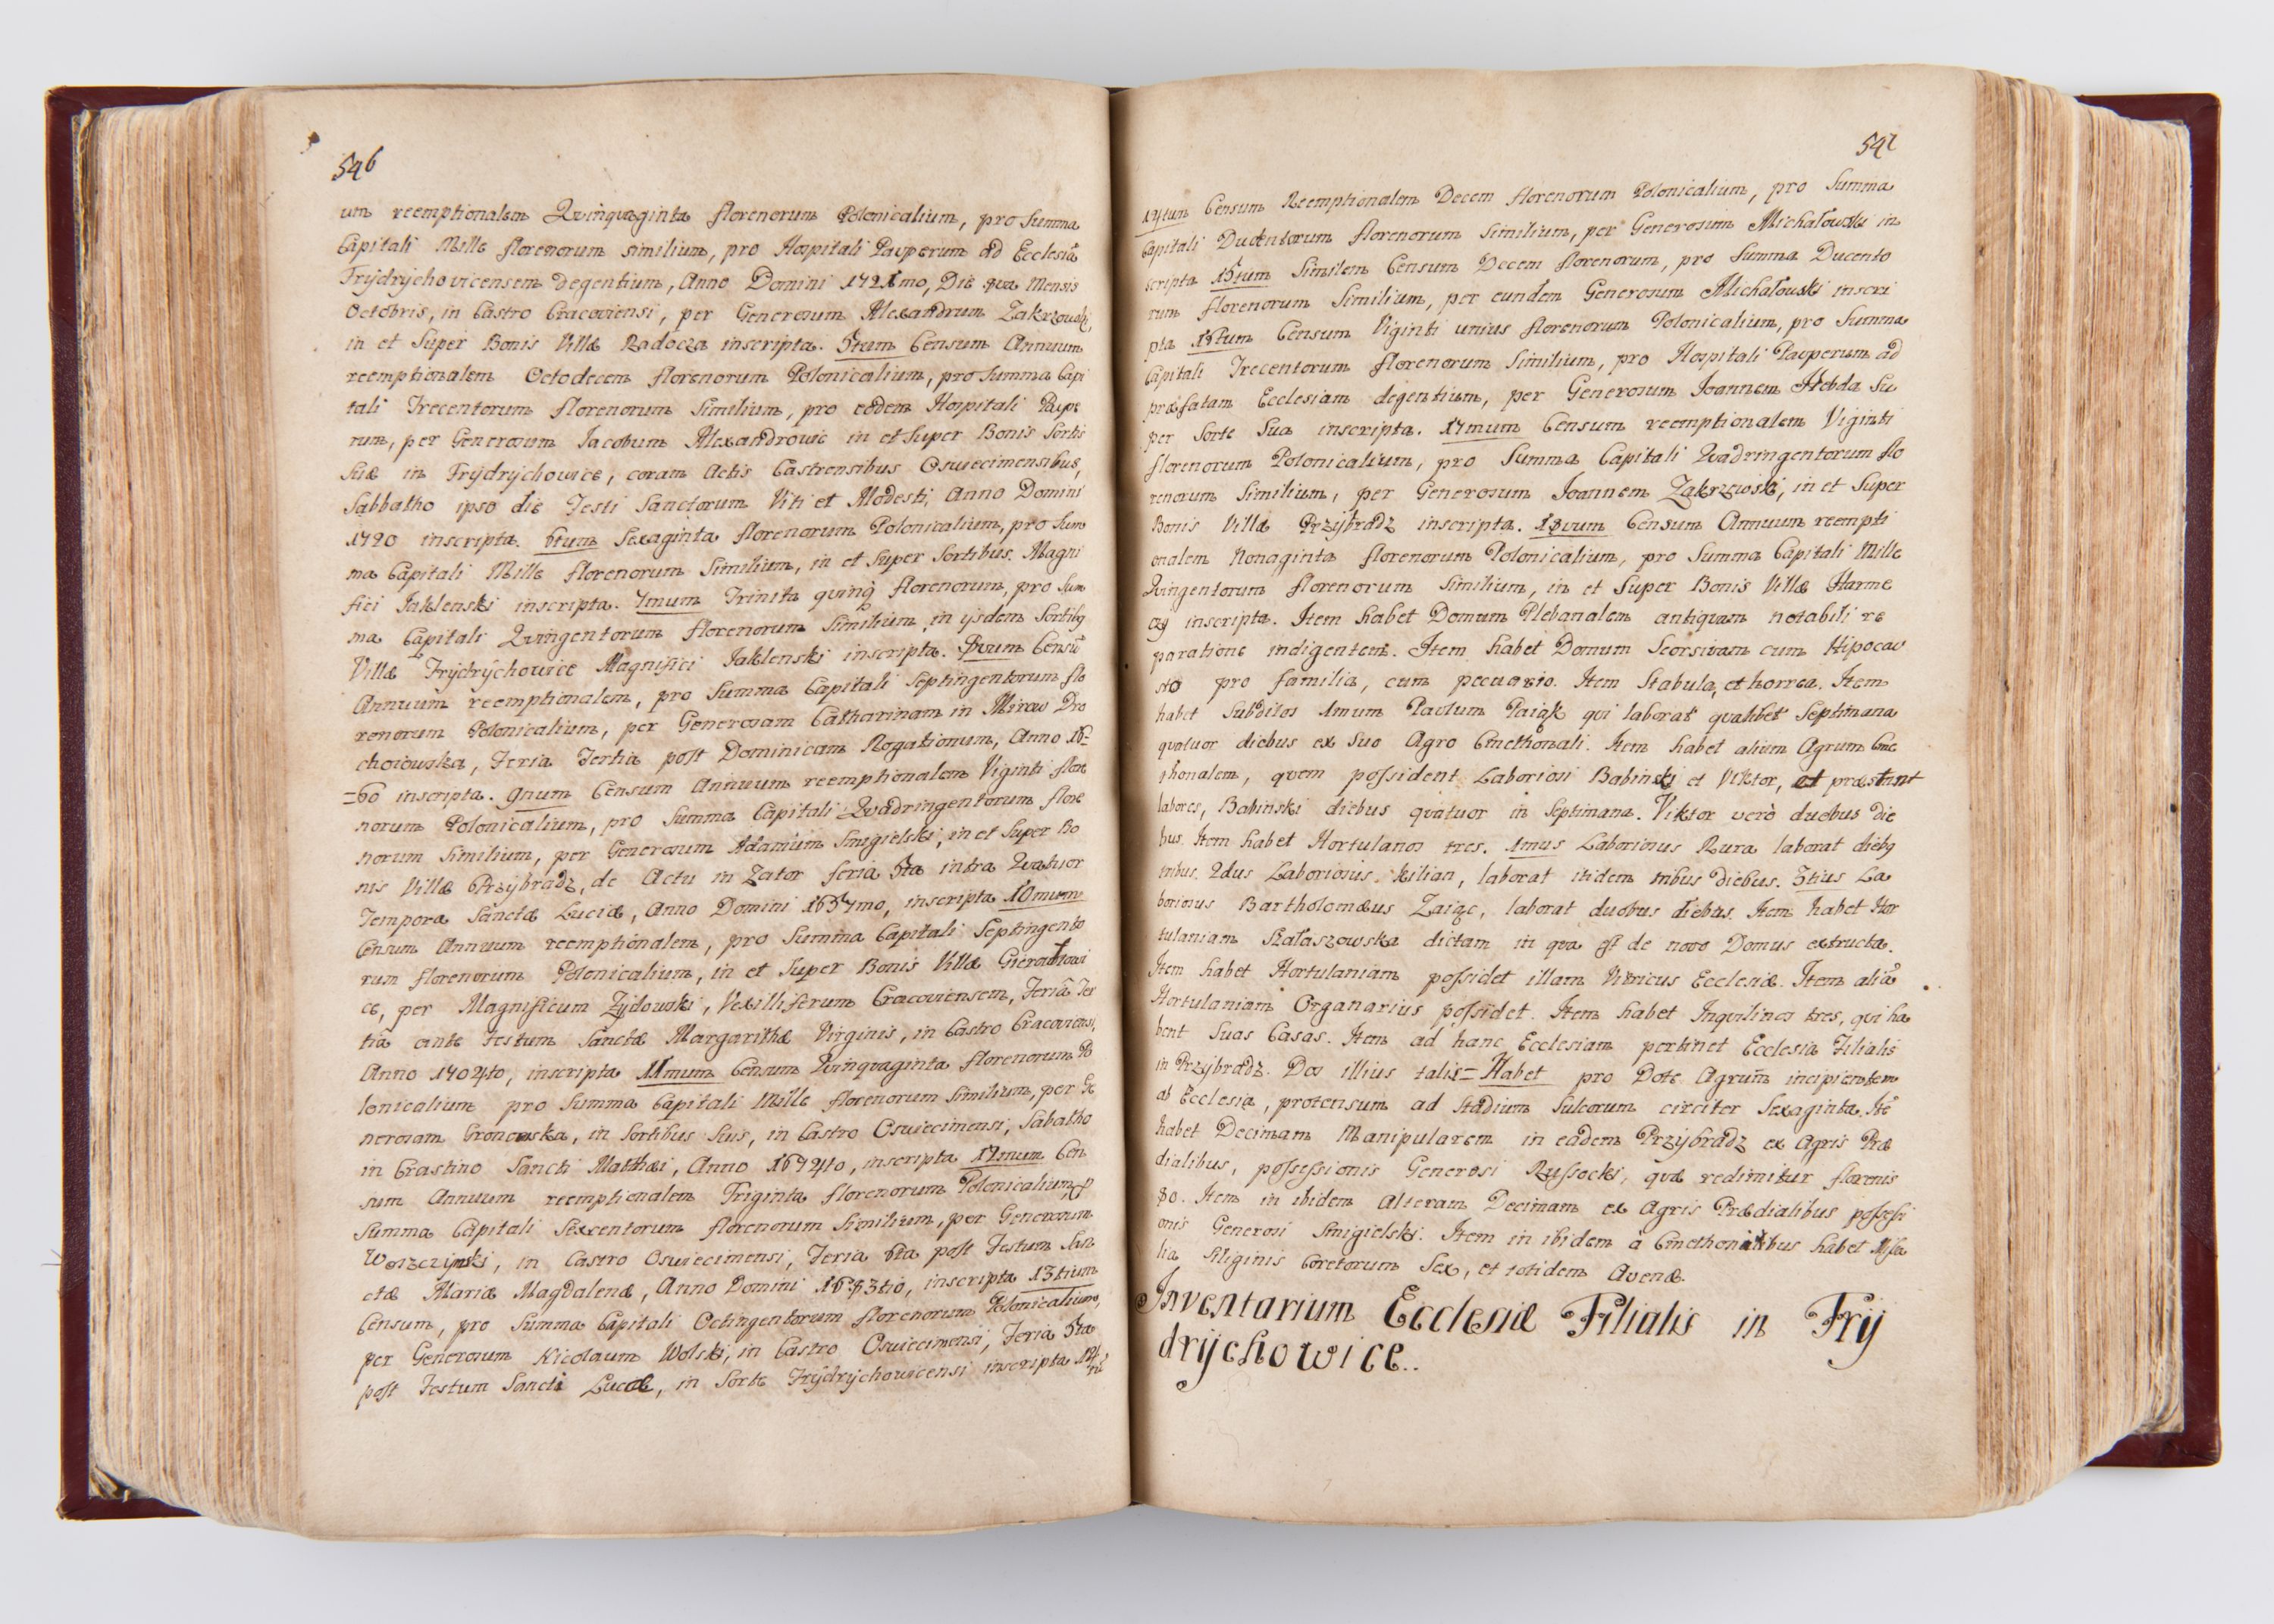 546
um reemptionalem Qvinqvaginta florenorum Polonicalium, pro Summa
Capitali Mille florenorum similium, pro Hospitali Pauperum ad Ecclesiã
Frÿdrÿchovicensem degentium, Anno Domini 1721mo, Die Mensis
Octobris, in Castro Cracoviensi, per Generosum Alexandrum Zakrzewski,
in et Super Bonis Villæ Radocza inscripta. 5tum Censum Annuum
reemptionalem Octodecem florenorum Polonicalium, pro Summa Capi
tali Trecentorum florenorum Similium, pro eodem Hospitali Paupe
rum, per Generosum Jacobum Alexandrowic in et Super Bonis Sortis
Suæ in Frÿdrÿchowice, coram Actis Castrensibus Osviecimensibus,
Sabbatho ipso die Festi Sanctorum Viti et Modesti, Anno Domini
1720 inscripta. 6tum Sexaginta florenorum Polonicalium, pro Sum
ma Capitali Mille florenorum Similium, in et Super Sortibus. Magni
fici Jaklenski inscripta. 7mum Triginta qvinq florenorum, pro Sum
ma Capitali Qvingentorum florenorum Similium, in ijsdem Sortibq
Villæ Frÿdrÿchowice Magnifici Jaklenski inscripta. 8vum Censũ
Annuum reemptionalem, pro Summa Capitali Septingentorum flo
renorum Polonicalium, per Generosam Catharinam in Mirow Dro
choiowska, Feria Tertia post Dominicam Rogationum, Anno 16=
=60 inscripta. 9num Censum Annuum reemptionalem Viginti flore
norum Polonicalium, pro Summa Capitali Qvadringentorum flore
norum Similium, per Generosum Adamum Smigielski, in et Super Bo
nis Villæ Przÿbradz, de Actu in Zator feria 5ta intra Qvatuor
Tempora Sanctæ Luciæ, Anno Domini 1657mo, inscripta 10mum
Censum Annuum reemptionalem, pro Summa Capitali Septingento
rum florenorum Polonicalium, in et Super Bonis Villæ Gierałtowi
ce, per Magnificum Zÿdowski, Vexilliferum Cracoviensem, Feriâ Ter
tiâ ante Festum Sanctæ Margarithæ Virginis, in Castro Cracoviensi,
Anno 1704to, inscripta 11mum Censum Qvinqvaginta florenorum Po
lonicalium pro Summa Capitali Mille florenorum Similium, per Ge
nerosam Gronowska, in Sortibus Suis, in Castro Osviecimensi, Sabatho
in Crastino Sancti Matthæi, Anno 1674to, inscripta 12mum Cen
sum Annuum reemptionalem Triginta florenorum Polonicalium, p
Summa Capitali Sexcentorum florenorum Similium, per Generosum
in Castro Osviecimensi, Feria 6ta post Festum San
ctæ Mariæ Magdalenæ, Anno Domini 1683tio, inscripta 13tium
Censum, pro Summa Capitali Octingentorum florenorum Polonicalium,
per Generosum Nicolaum Wolski, in Castro Osviecimensi, Feria 5ta
post Festum Sancti Lucæ, in Sorte Frÿdrÿchovicensi inscripta
547
14tum Censum Reemptionalem Decem florenorum Polonicalium, pro Summa
Capitali Ducentorum florenorum Similium, per Generosum Michałowski in
scripta 15tum Similem Censum Decem florenorum, pro Summa Ducento
rum florenorum Similium, per eundem Generosum Michałowski inscri
pta 16tum Censum Viginti unius florenorum Polonicalium, pro Summa
Capitali Trecentorum florenorum Similium, pro Hospitali Pauperum ad
præfatam Ecclesiam degentium, per Generosum Joannem Hebda Su
per Sorte Sua inscripta. 17mum Censum reemptionalem Viginti
florenorum Polonicalium, pro Summa Capitali Qvadringentorum flo
renorum Similium, per Generosum Joannem Zakrzewski, in et Super
Bonis Villæ Przÿbradz inscripta. 18vum Censum Annuum reempti
onalem Nonaginta florenorum Polonicalium, pro Summa Capitali Mille
Qvingentorum florenorum Similium, in et Super Bonis Villæ Harme
zy inscripta. Item habet Domum Plebanalem antiqvam notabili re
paratione indigentem. Item habet Domum Seorsivam cum Hipocau
sto pro familia, cum pecuario. Item Stabula, et horrea. Item
habet Subditos 1mum Paulum Paiąk qui laborat qvalibet Septimana
qvatuor diebus ex Suo Agro Cmethonali. Item habet alium Agrum Cme
thonalem, qvem possident Laboriosi Babinski et Viktor, et præstant
labores, Babinski diebus qvatuor in Septimana. Viktor verò duobus die
bus. Item habet Hortulanos tres. 1mus Laboriosus Rura laborat diebq
tribus. 2dus Laboriosus Kilian, laborat itidem tribus diebus. 3tius La
boriosus Bartholomæus Zaiąc, laborat duobus diebus. Item habet Hor
tulaniam Kałaszowska dictam in qva est de novo Domus extructa.
Item habet Hortulaniam possidet illam Vitricus Ecclesiæ. Item aliã
Hortulaniam Organarius possidet. Item habet Inqvilinos tres, qui ha
bent Suas Casas. Item ad hanc Ecclesiam pertinet Ecclesia Filialis
in Przÿbradz. Dos illius talis= Habet pro Dote Agrum incipientem
ab Ecclesia, protensum ad Stadium Sulcorum circiter Sexaginta. Itẽ
habet Decimam Manipularem in eadem Przÿbradz ex Agris Præ
dialibus, possessionis Generosi Russocki, qvæ redimitur florenis
80. Item in ibidem Alteram Decimam ex Agris Prædialibus possessi
onis Generosi Smigielski. Item in ibidem à Cmethonibus habet Missa
lia Siliginis Coretorum Sex, et totidem Avenæ.
Inventarium Ecclesiæ Filialis in Frÿ
drÿchowice..